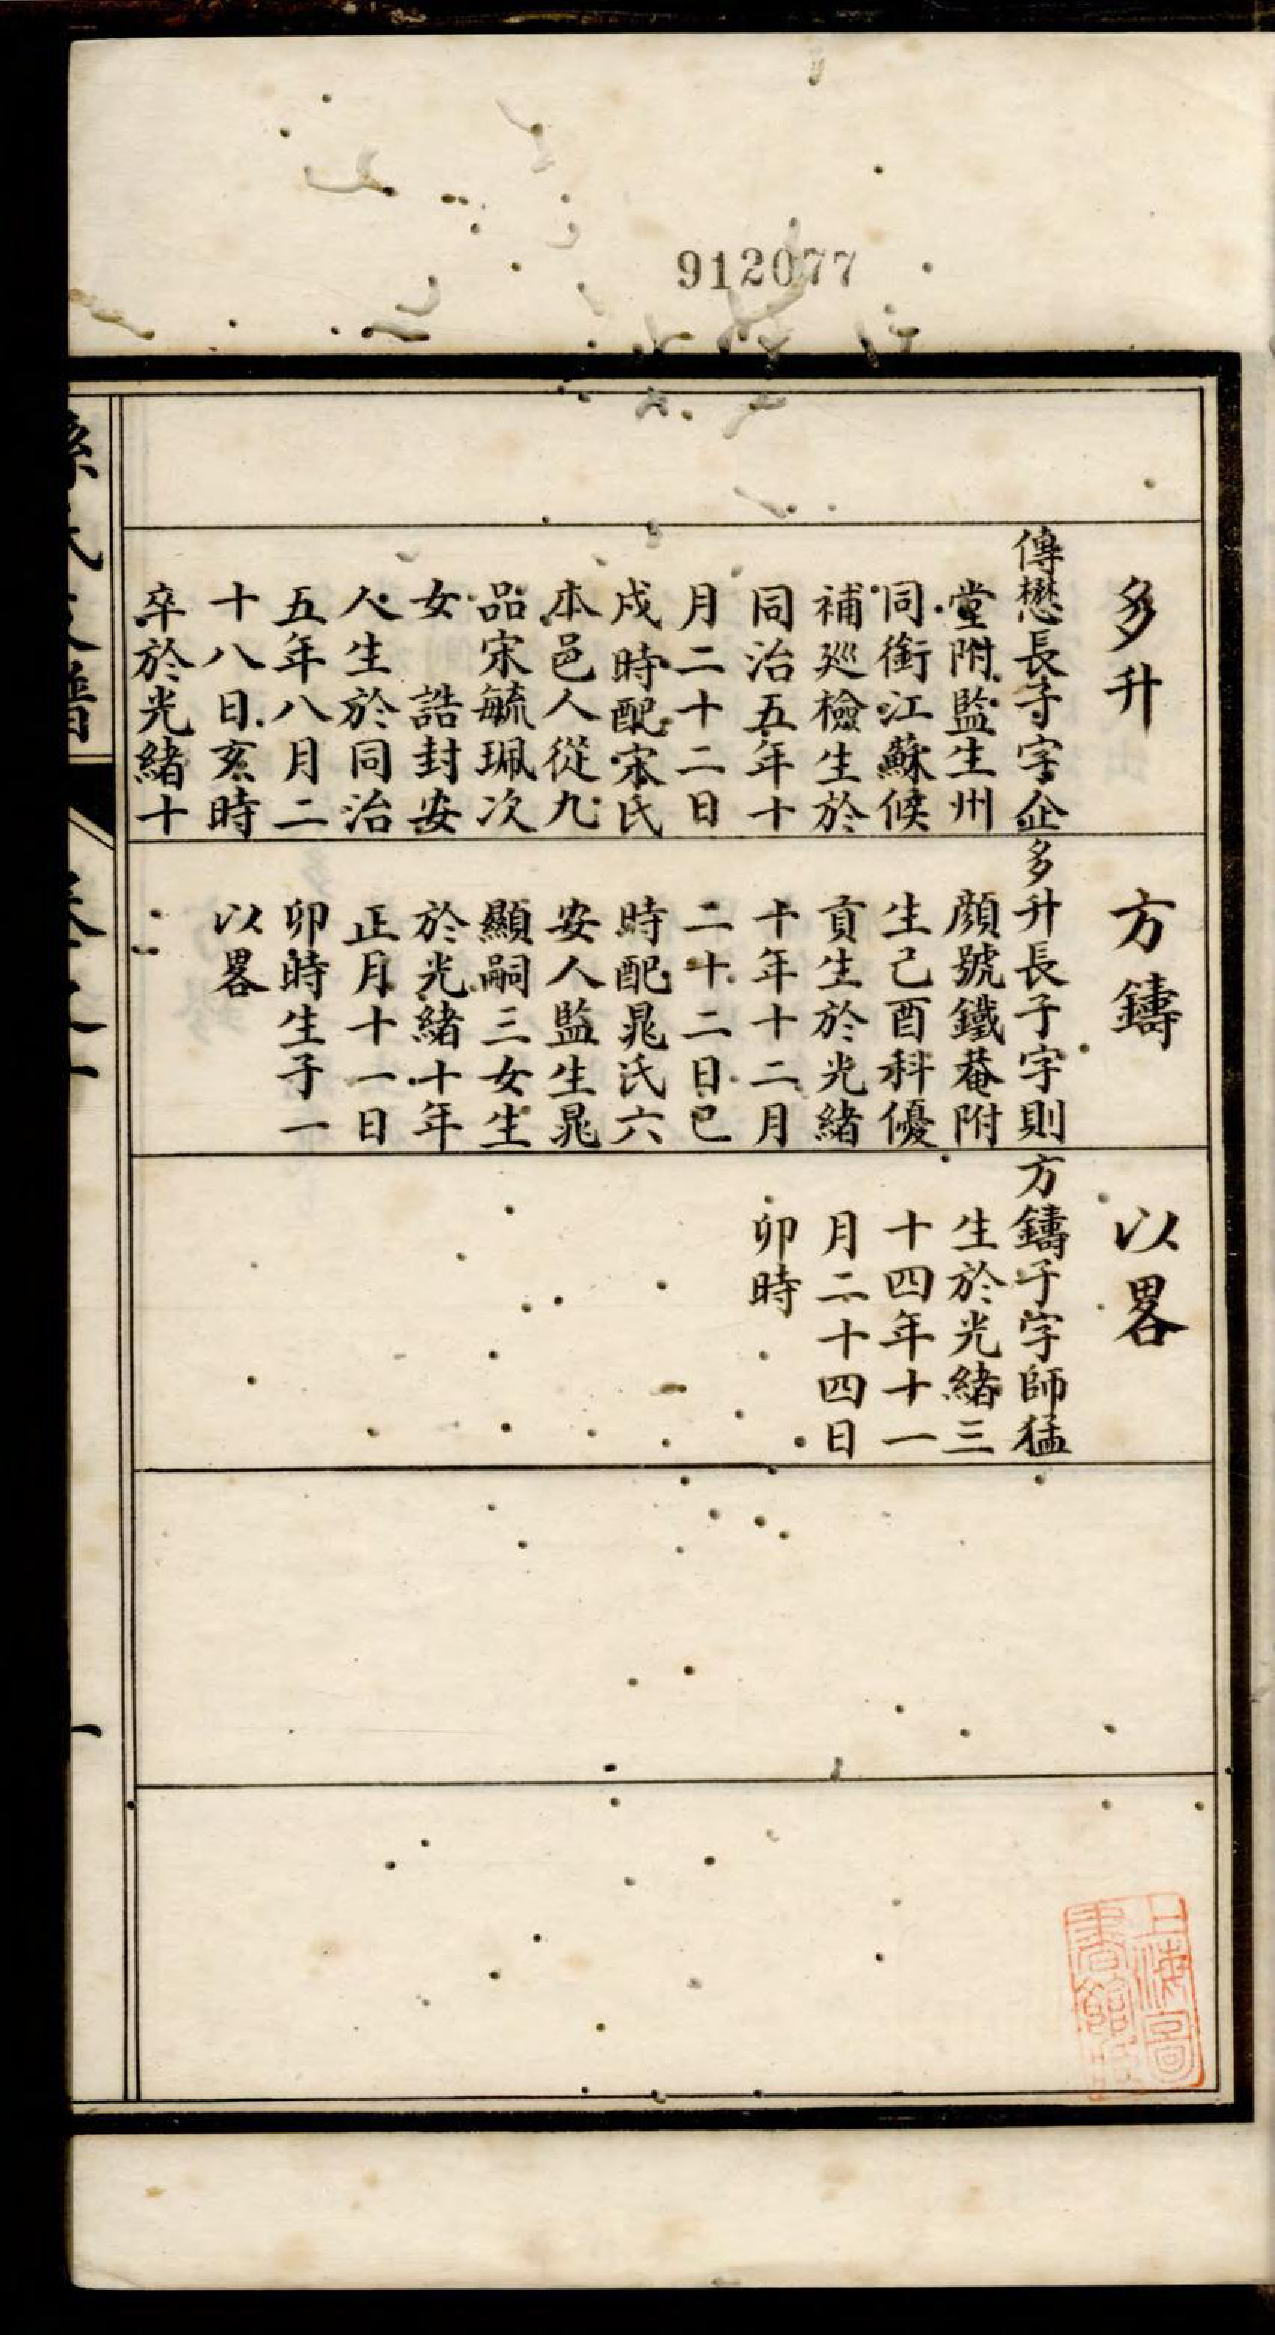 912077
多升
傳懋長子字企
堂附監生州
同銜江蘇候
補巡檢生於
同治五年十
月二十二日
戌時配宋氏
本邑人從九
品宋毓珮次
女 誥封安
人生於同治
五年八月二
十八日亥時
卒於光緒十
方鑄
多升長子字則
顏號鐵菴附
生己酉科優
貢生於光緒
十年十二月
二十二日巳
時配晁氏六
安人監生晁
顯嗣三女生
於光緒十年
正月十一日
卯時生子一
以畧
以畧
方鑄子字師猛
生於光緒三
十四年十一
月二十四日
卯時
孫氏支譜
一
上海圖
書館藏